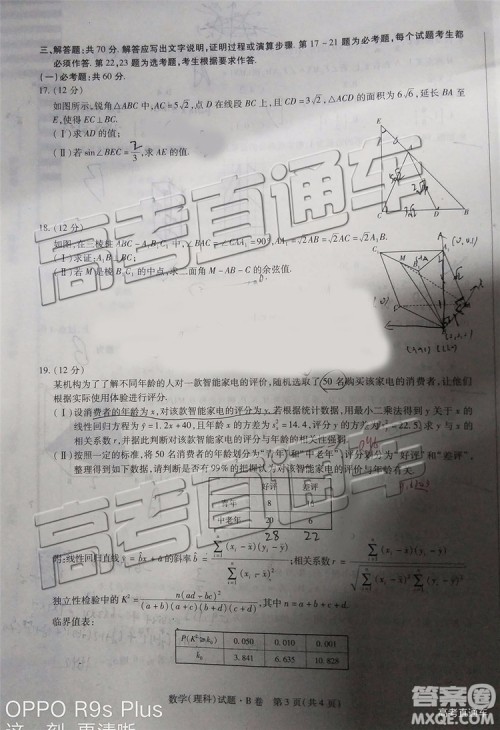 三、解答题:共 70 分. 解答应写出文字说明,证明过程或演算步骤. 第 17－21 题为必考题,每个试题考生都
必须作答. 第 22,23 题为选考题,考生根据要求作答.
(一)必考题:共 60 分.
17. (12 分)
如图所示,锐角△ABC 中,AC=5√2,点 D 在线段 BC 上,且 CD=3√2,△ACD 的面积为 6√6,延长 BA 至
E,使得 EC⊥BC.
(Ⅰ)求 AD 的值;
(Ⅱ)若 sin∠BEC=2/3,求 AE 的值.
E
A
C D B
18. (12 分)
高考直通车
(Ⅰ)求证:A₁B⊥B₁C;
(Ⅱ)若 M 是棱 B₁C₁ 的中点,求二面角 M-AB-C 的余弦值.
19. (12 分)
某机构为了了解不同年龄的人对一款智能家电的评价,随机选取了 50 名购买该家电的消费者,让他们
根据实际使用体验进行评分.
(Ⅰ)设消费者的年龄为 x,对该款智能家电的评分为 y. 若根据统计数据,用最小二乘法得到 y 关于 x 的
线性回归方程为 ŷ=1.2x+40,且年龄 x 的方差为 =14.4,评分 y 的方差为 =22.5. 求 y 与 x 的
相关系数 r,并据此判断对该款智能家电的评分与年龄的相关性强弱.
(Ⅱ)按照一定的标准,将 50 名消费者的年龄划分为“青年”和“中老年”,评分划分为“好评”和“差评”,
整理得到如下数据,请判断是否有 99% 的把握认为对该款智能家电的评价与年龄有关.
好评 差评
青年 8 16
中老年 20 6
28 22
高考直通车
附:线性回归直线 ŷ=b̂x+â 的斜率 b̂=∑(xᵢ-x̄)(yᵢ-ȳ)/∑(xᵢ-x̄)²;相关系数 r=∑(xᵢ-x̄)(yᵢ-ȳ)/√(∑(xᵢ-x̄)²∑(yᵢ-ȳ)²)
独立性检验中的 K²=n(ad-bc)²/((a+b)(a+c)(b+d)(c+d)),其中 n=a+b+c+d.
临界值表:
P(K²≥k₀) 0.050 0.010 0.001
k₀ 3.841 6.635 10.828
数学(理科)试题·B 卷 第 3 页(共 4 页)
OPPO R9s Plus
这一刻 更清晰
高考直通车
答案圈
MXQE.COM